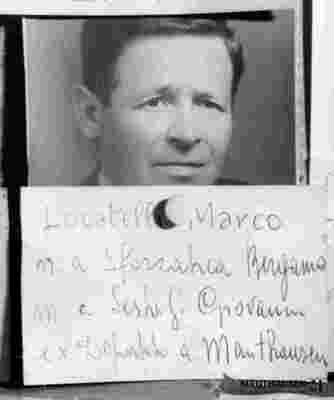 Locatelli, Marco
n. a Bergamo
m a Sesto S. Giovanni
ex Deportato a Mauthausen